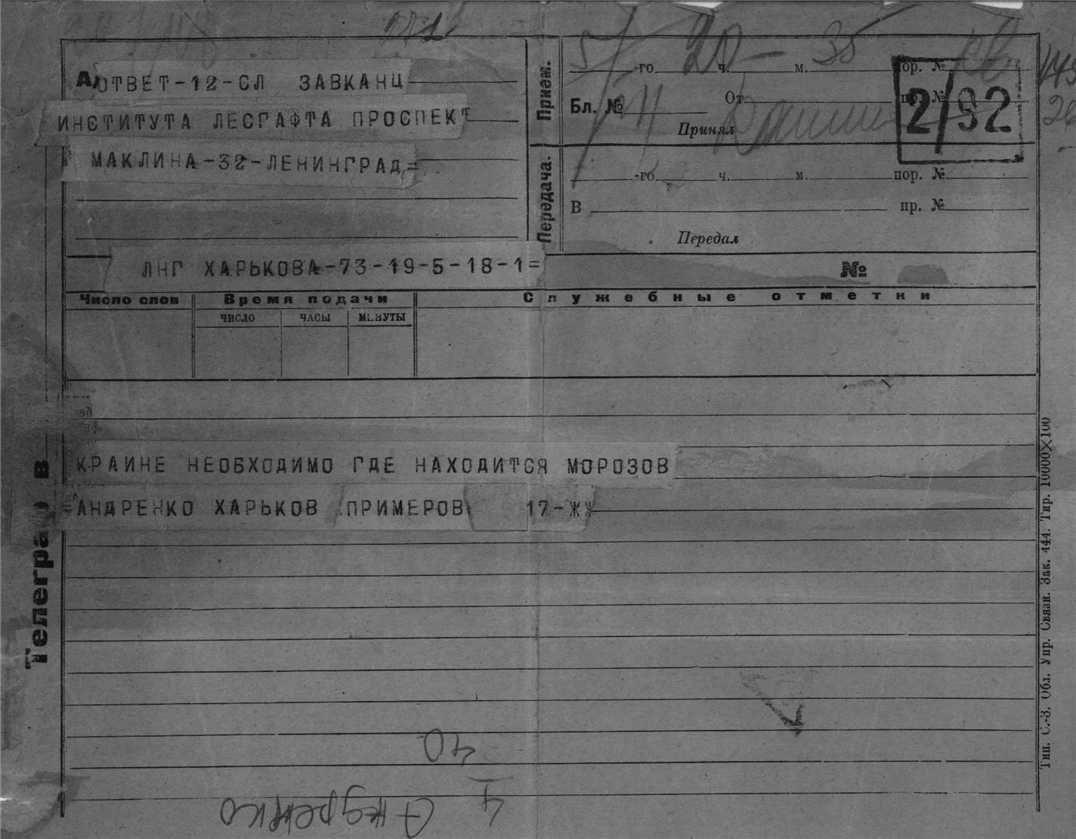 ОТВЕТ-12-СЛ ЗАВКАНЦ
ИНСТИТУТА ЛЕСГАФТА ПРОСПЕКТ
МАКЛИНА-32-ЛЕНИНГРАД=
Прием.
5/ -го 20 ч. 35 м. пор. №
Бл. № От пр. №
Принял
2/92
Передача.
-го ч. м. пор. №
В пр. №
Передал
ЛНГ ХАРЬКОВА-73-19-5-18-1=
№
Число слов Время подачи Служебные отметки
ЧИСЛО ЧАСЫ МИНУТЫ
КРАИНЕ НЕОБХОДИМО ГДЕ НАХОДИТСЯ МОРОЗОВ
=АНДРЕНКО ХАРЬКОВ ПРИМЕРОВ 17-Ж
Телеграм в
Тип. С.-З. Обл. Упр. Связи. Зак. 444. Тир. 10000×100
40
Андренко